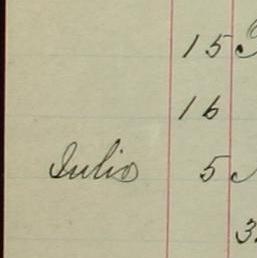 15
16
Julio 5
3